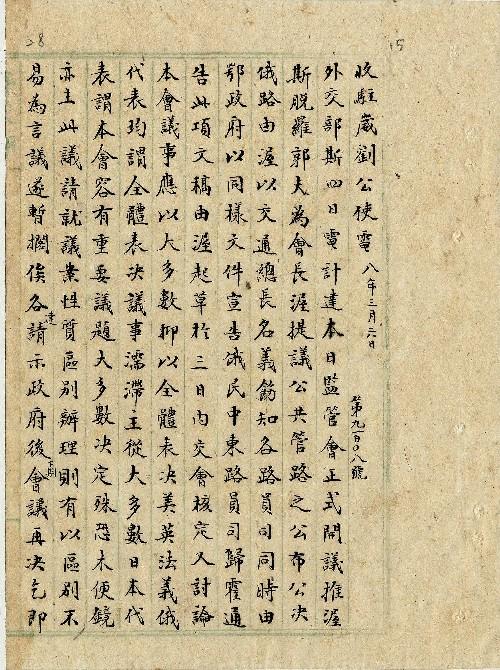 28
15
收駐崴劉公使電 八年三月六日 第九一〇八號
外交部斯四日電計達本日監管會正式開議推渥
斯脫羅郭夫為會長渥提議公共管路之公布公決
俄路由渥以交通總長名義飭知各路員司同時由
鄂政府以同樣文件宣告俄民中東路員司歸霍通
告此項文稿由渥起草於三日內交會核定又討論
本會議事應以大多數抑以全體表決美英法義俄
代表均謂全體表決議事濡滯主從大多數日本代
表謂本會容有重要議題大多數決定殊恐未便鏡
亦主此議請就議案性質區別辦理則有以區別不
易為言議遂暫擱俟各請示政府後會議再決乞即